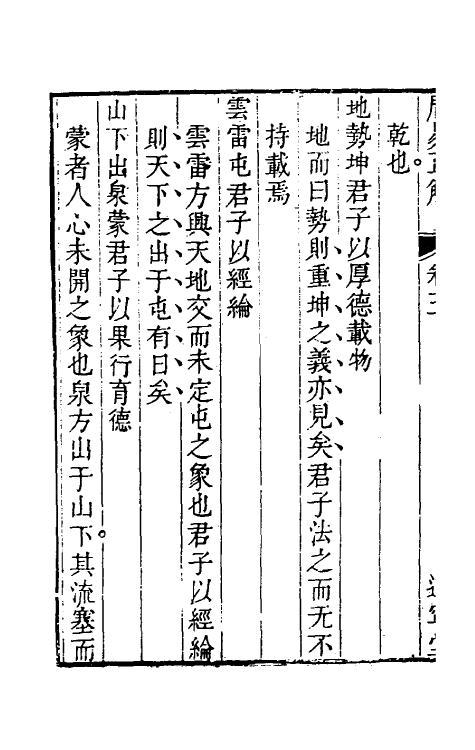 乾也
地勢坤君子以厚德載物
地而曰勢則重坤之義亦見矣君子法之而无不
持載焉
雲雷屯君子以經綸
雲雷方興天地交而未定屯之象也君子以經綸
則天下之出于屯有日矣
山下出泉蒙君子以果行育德
蒙者人心未開之象也泉方出于山下其流塞而